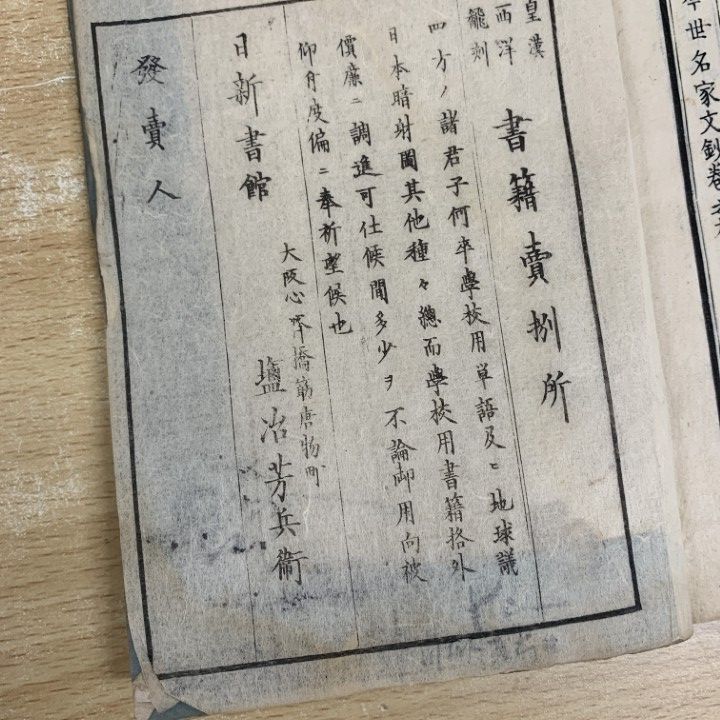 本世名家文鈔卷之
皇漢
西洋
龍刻
書籍賣捌所
四方ノ諸君子何卒學校用単語及ヒ地球議
日本暗射圖其他種々總而學校用書籍格外
價廉ニ調進可仕候間多少ヲ不論御用向被
仰付度偏ニ奉祈望候也
大阪心斎橋筋唐物町
日新書館 塩冶芳兵衛
發賣人